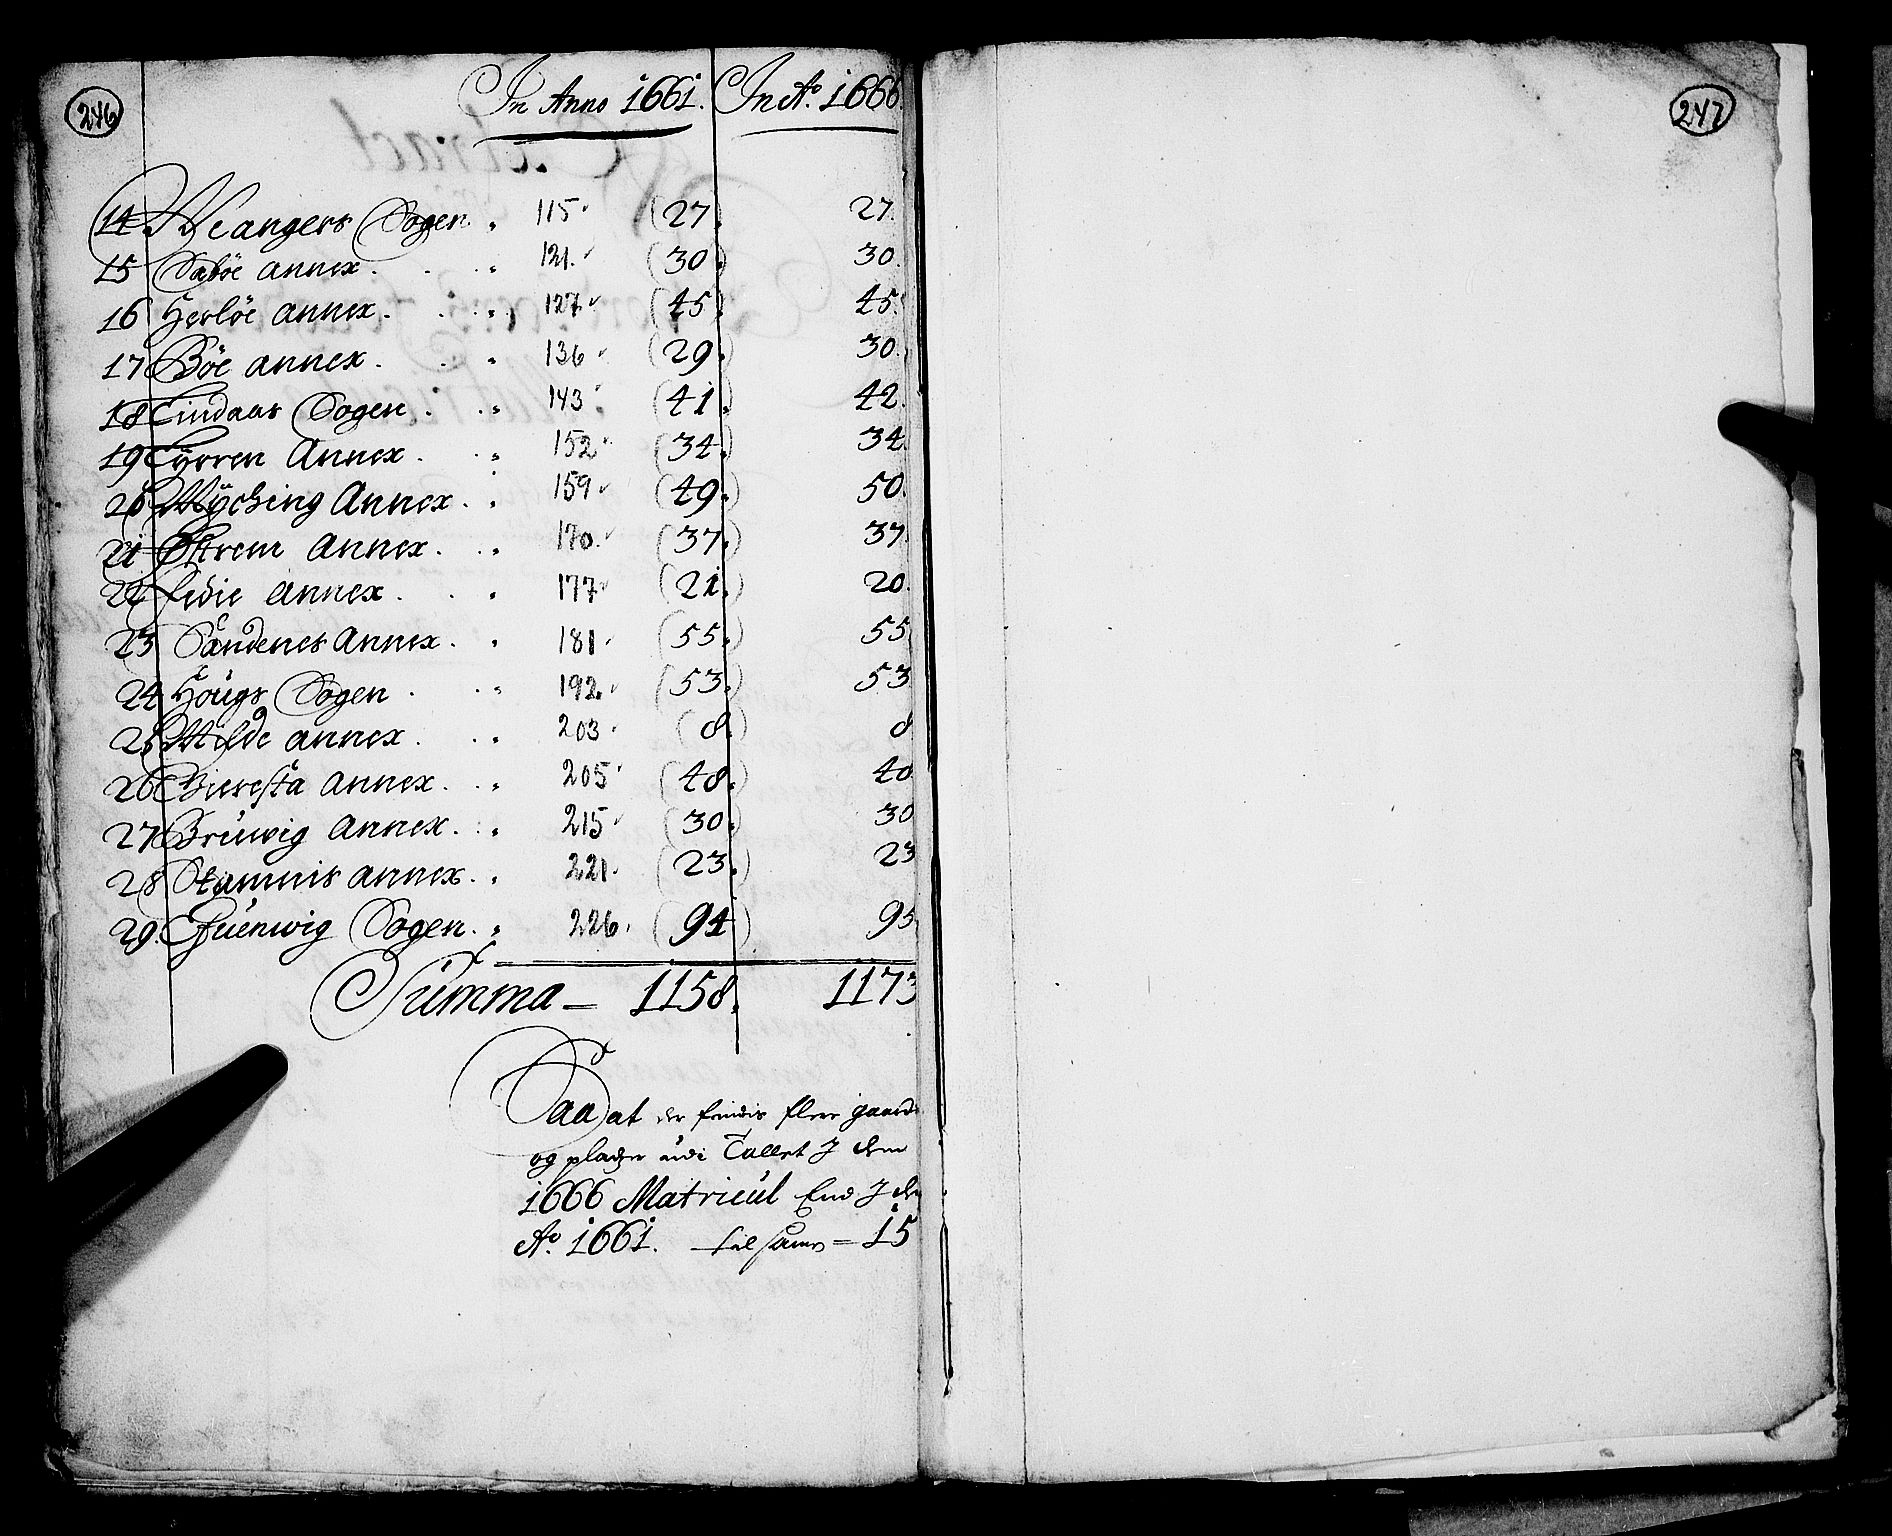 246
In Anno 1661. In Ao. 1666
14 Meangers Sogen „ 115 (27.) 27.
15 Sæbøe annex . . „ 121. (30.) 30.
16 Herløe annex . . „ 127 (45.) 45.
17 Bøe annex . . „ 136 (29.) 30.
18 Lindaas Sogen . „ 143 (41.) 42.
19 Lÿgren Annex . „ 152 (34.) 34
20 Mÿching Annex . „ 159 (49.) 50.
21 Østrem Annex . „ 170. (37.) 37.
22 Fedie Annex . . „ 177 (21.) 20.
23 Sandenes Annex . „ 181. (55.) 55
24 Hougs Sogen . „ 192. (53.) 53
25 Milde annex . „ 203 (8.) 8
26 Gieresta annex . „ 205 (48.) 48
27 Bruwig Annex . „ 215 (30.) 30
28 Stamnis annex . „ 221. (23.) 23
29. Euenwig Sogen . „ 226. (94) 95
Summa — 1158. 1173
Saa at der findis flere gaarde
og pladzer udi Tallet J dem
1666 Matricul End J de
Ao. 1661. — tilsams = 15
247